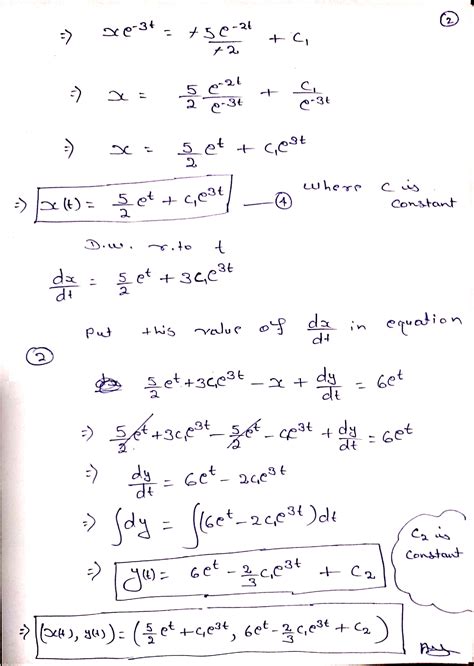 ②
=) xe^-3t = +5e^-2t / +2 + C₁
=) x = 5/2 e^-2t / e^-3t + C₁ / e^-3t
=) x = 5/2 e^t + C₁e^3t
=) x(t) = 5/2 e^t + C₁e^3t —④ where C is constant
D.w. r.to t
dx/dt = 5/2 e^t + 3C₁e^3t
Put this value of dx/dt in equation
②
5/2 e^t + 3C₁e^3t - x + dy/dt = 6e^t
=) 5/2 e^t + 3C₁e^3t - 5/2 e^t - C₁e^3t + dy/dt = 6e^t
=) dy/dt = 6e^t - 2C₁e^3t
=) ∫dy = ∫(6e^t - 2C₁e^3t)dt
=) y(t) = 6e^t - 2/3 C₁e^3t + C₂
C₂ is constant
=) (x(t), y(t)) = (5/2 e^t + C₁e^3t, 6e^t - 2/3 C₁e^3t + C₂)
Ans